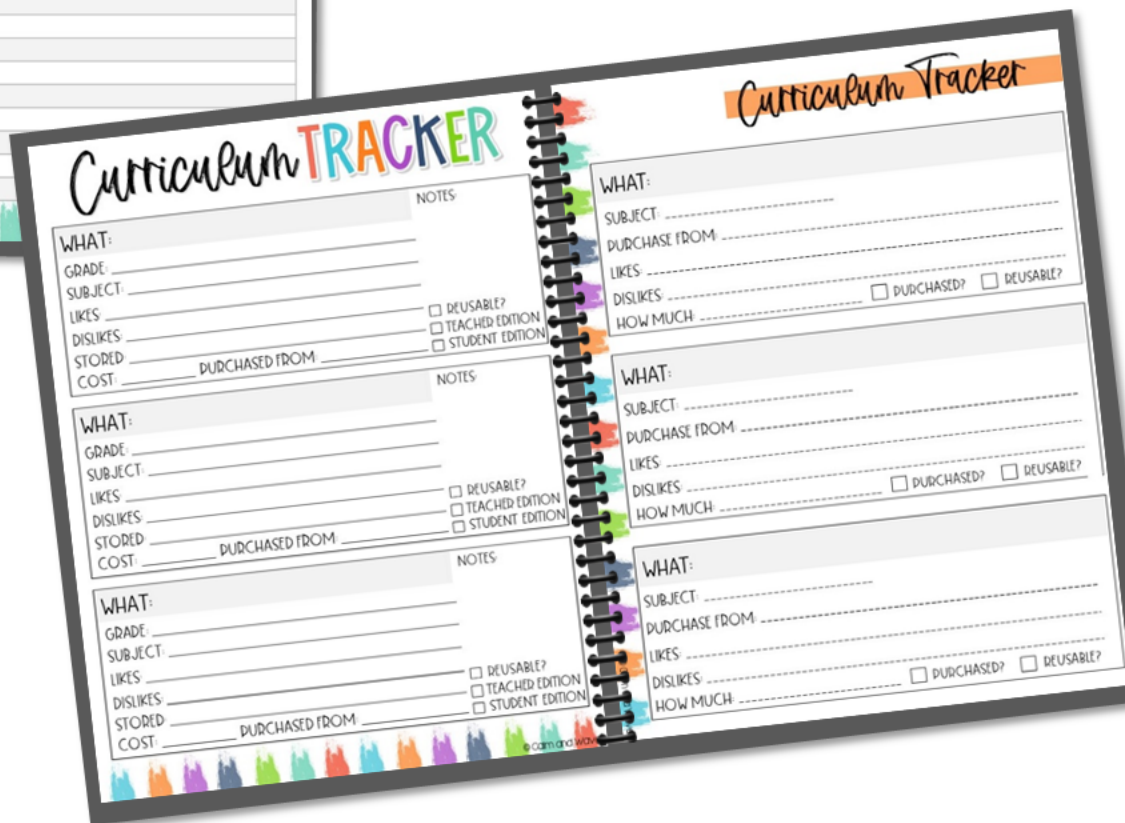 Curriculum TRACKER
NOTES:
WHAT:
GRADE:
SUBJECT:
LIKES:
DISLIKES:
STORED:
COST: PURCHASED FROM:
REUSABLE?
TEACHER EDITION
STUDENT EDITION
NOTES:
WHAT:
GRADE:
SUBJECT:
LIKES:
DISLIKES:
STORED:
COST: PURCHASED FROM:
REUSABLE?
TEACHER EDITION
STUDENT EDITION
NOTES:
WHAT:
GRADE:
SUBJECT:
LIKES:
DISLIKES:
STORED:
COST: PURCHASED FROM:
REUSABLE?
TEACHER EDITION
STUDENT EDITION
Curriculum Tracker
WHAT:
SUBJECT:
PURCHASE FROM:
LIKES:
DISLIKES:
HOW MUCH: PURCHASED? REUSABLE?
WHAT:
SUBJECT:
PURCHASE FROM:
LIKES:
DISLIKES:
HOW MUCH: PURCHASED? REUSABLE?
WHAT:
SUBJECT:
PURCHASE FROM:
LIKES:
DISLIKES:
HOW MUCH: PURCHASED? REUSABLE?